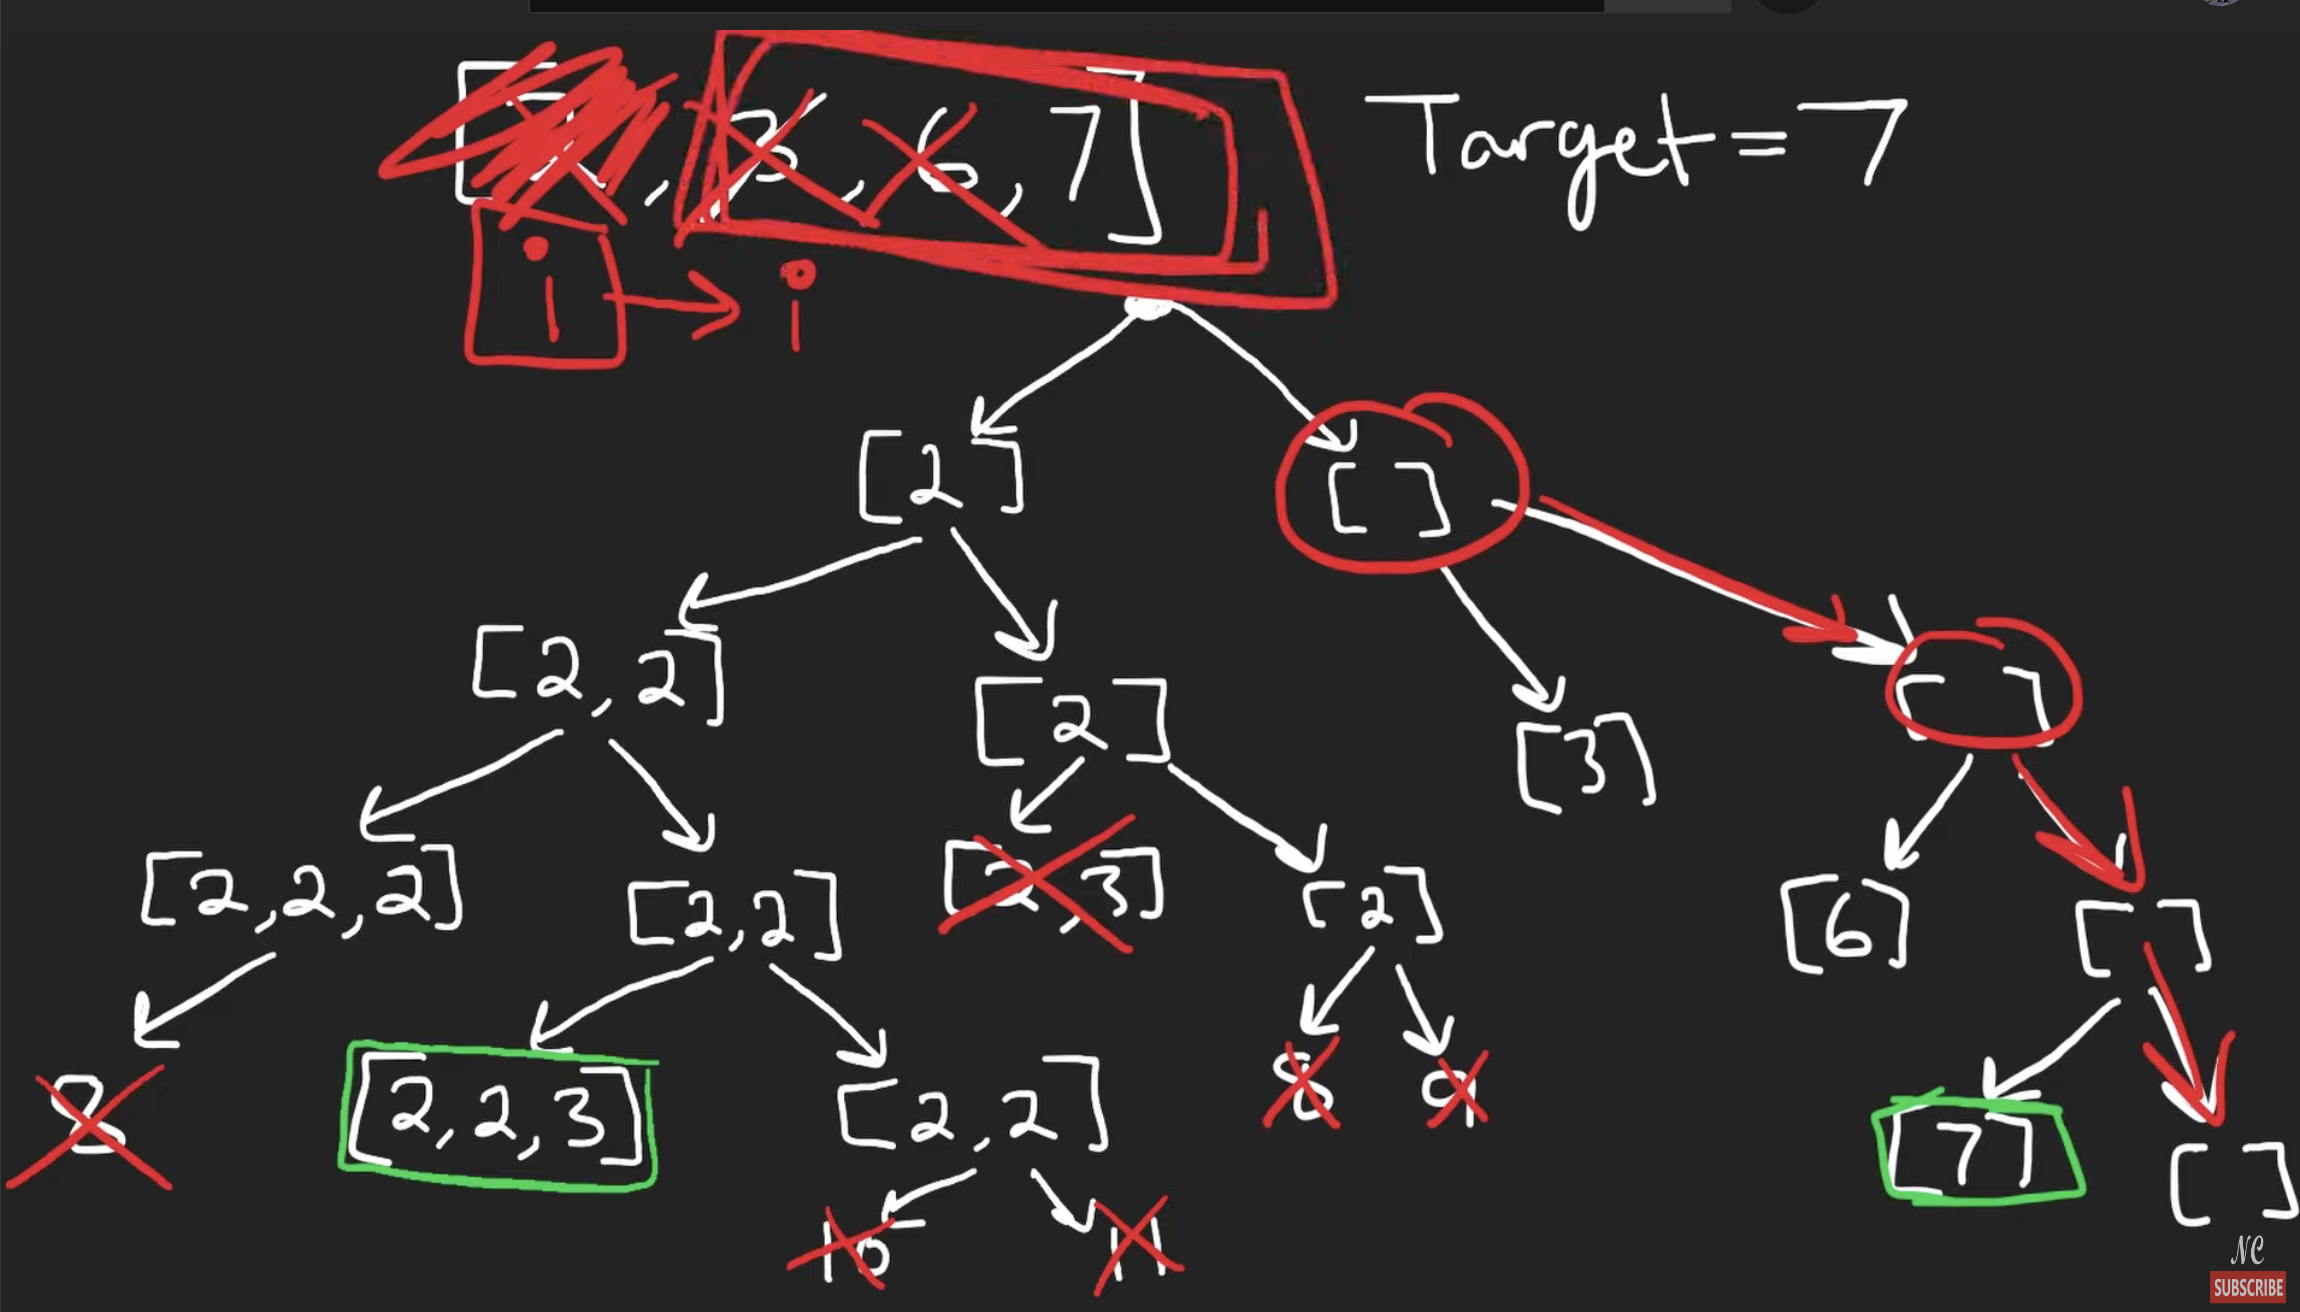 [2, 3, 6, 7] Target = 7
i → i
[2] []
[2,2] [2] [3] []
[2,2,2] [2,2] [2,3] [2] [6] []
8 [2,2,3] [2,2] 8 9 [7] []
10 11
NC
SUBSCRIBE